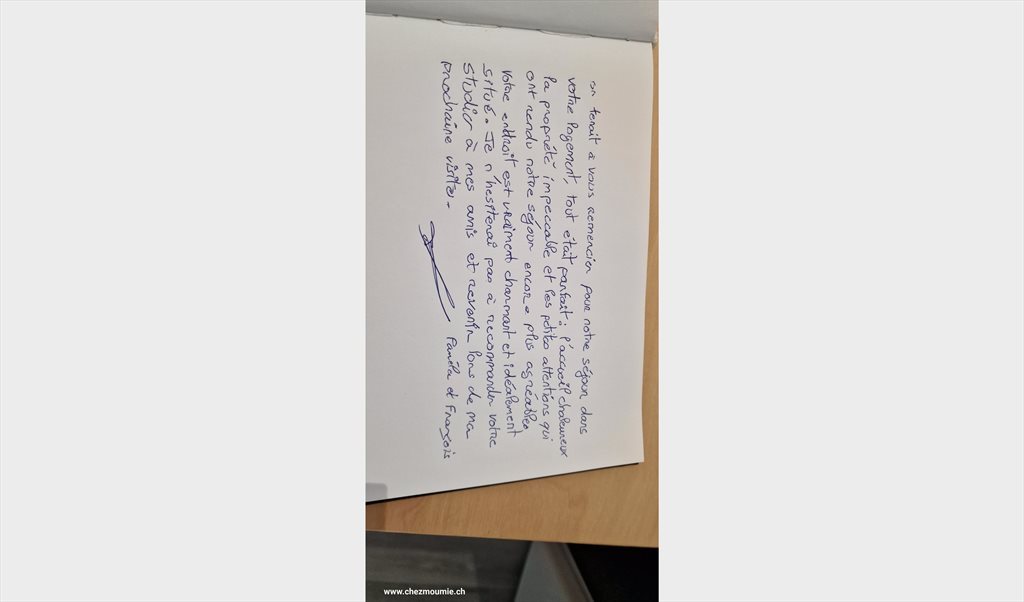 on tenait à vous remercier pour notre séjour dans
votre logement, tout était parfait : l'accueil chaleureux
la propriété impeccable et les petites attentions qui
ont rendu notre séjour encore plus agréables
votre endroit est vraiment charmant et idéalement
situé. Je n'hésiterai pas à recommander votre
studio à mes amis et revenir lors de ma
prochaine visite.
et François
www.chezmoumie.ch